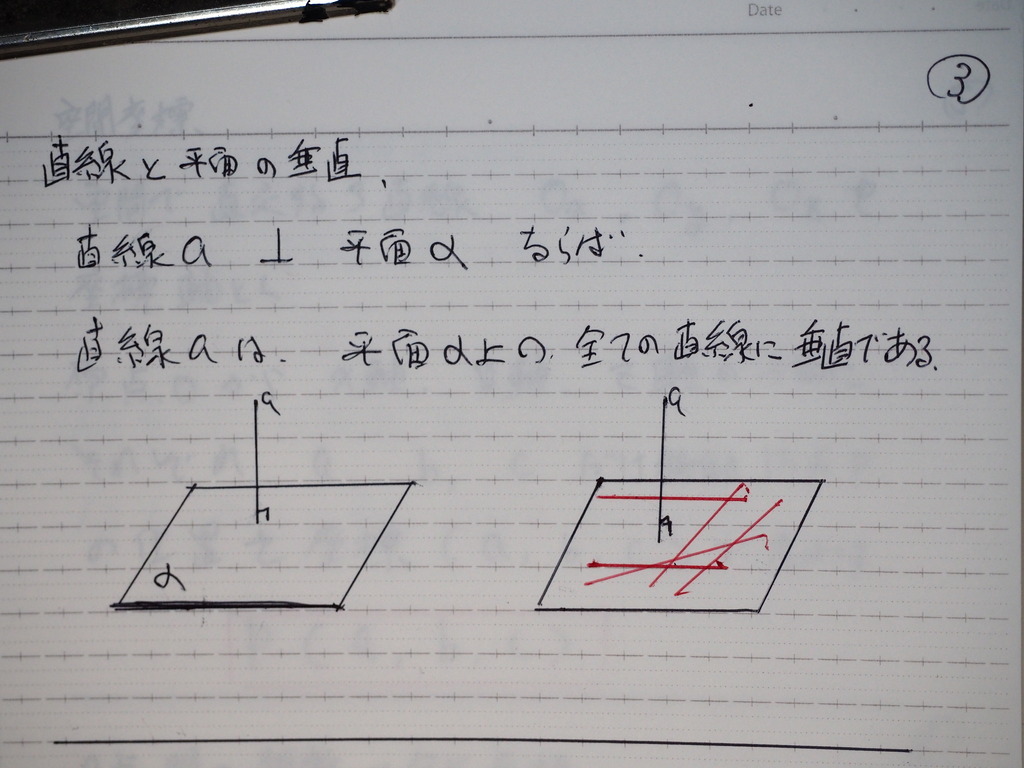 Date
③
直線と平面の垂直、
直線a ⊥ 平面α ならば.
直線aは. 平面α上の. 全ての直線に垂直である.
a
a
α